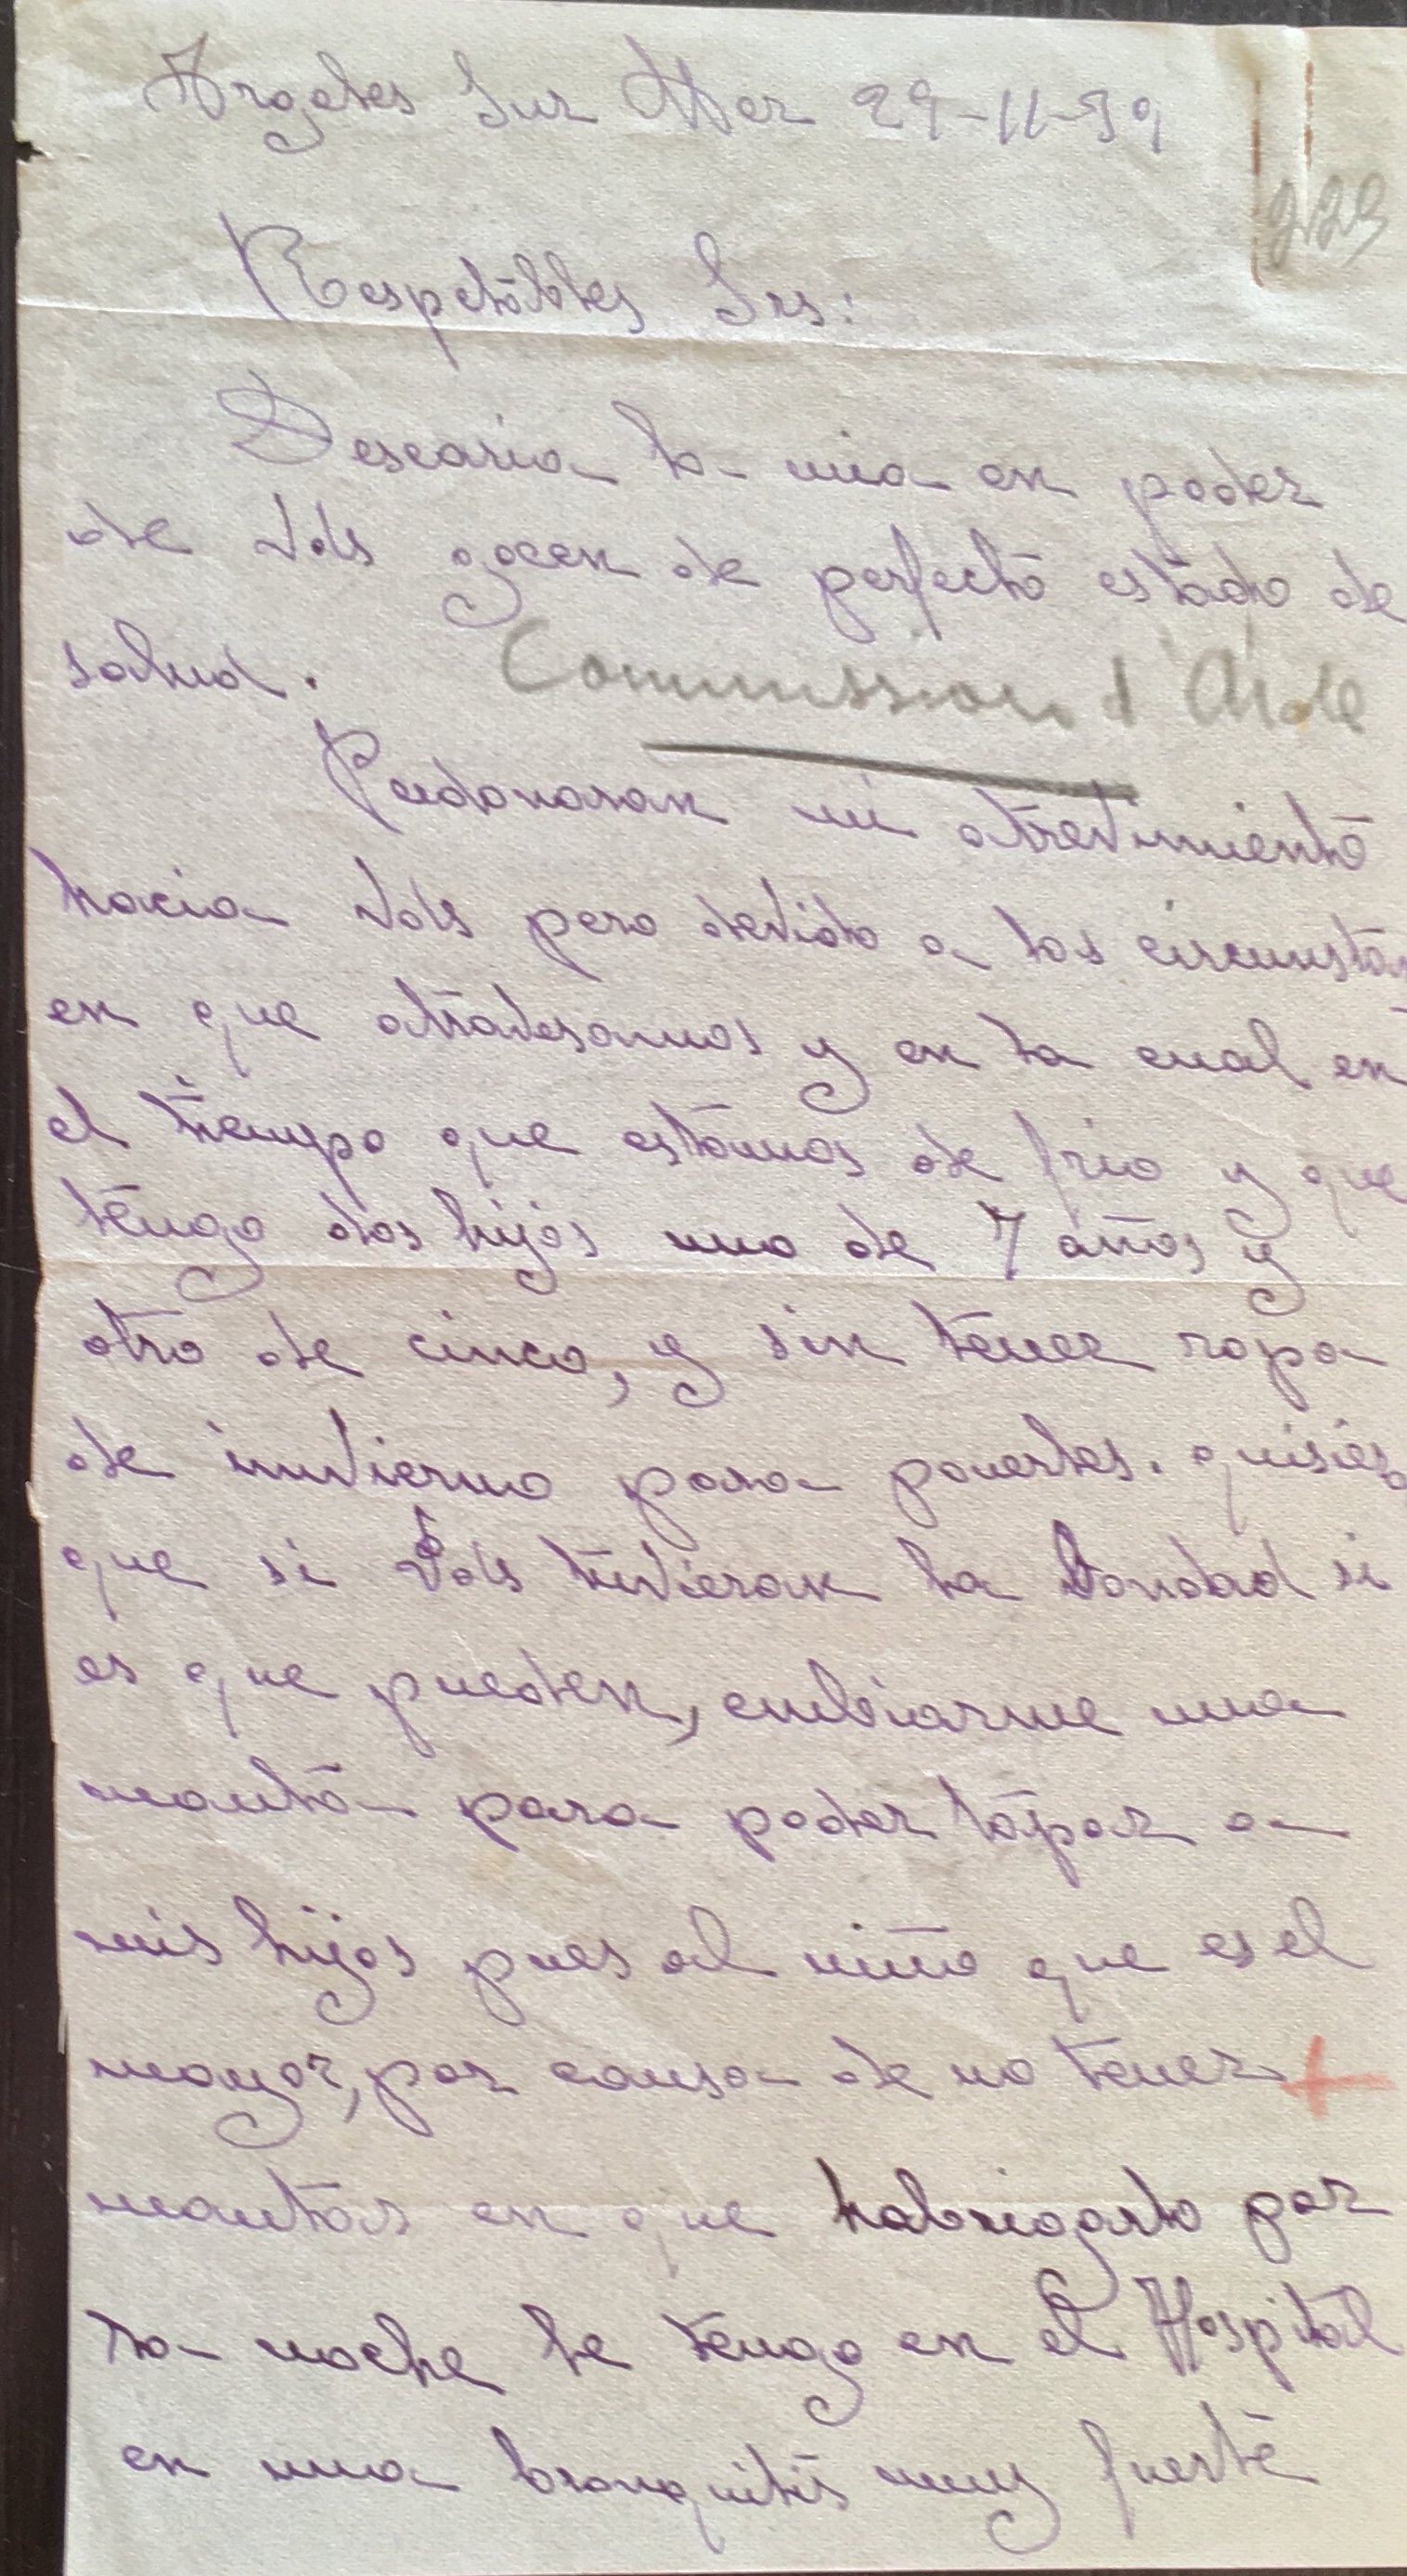 Argeles Sur Mer 29-11-39
223
Respetables Srs:
Desearia la mia en poder
de Vds gocen de perfecto estado de
salud.
Commission d'Aide
Perdonaran mi atrevimiento
hacia Vds pero devido a las circunstan
en que atravesamos y en la cual en
el tiempo que estamos de frio y que
tengo dos hijos uno de 7 años y
otro de cinco, y sin tener ropa
de invierno para ponerles. quisiera
que si Vds tuvieran la bondad si
es que pueden, embiarme una
manta para poder tapar a
mis hijos pues al niño que es el
mayor, por causa de no tener
mantas en que habrigarlo por
la noche le tengo en el Hospital
en una bronquitis muy fuerte